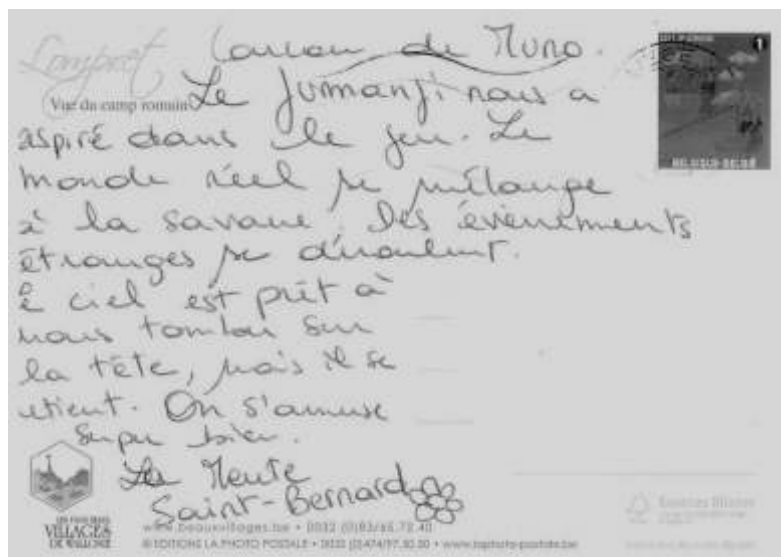 Lompret
Coucou de Muno.
Vue du camp romain
Le Jumanji nous a
aspiré dans le jeu. Le
monde réel se mélange
à la savane. Des évènements
étranges se déroulent.
e ciel est prêt à
nous tomber sur
la tête, mais il se
retient. On s'amuse
super bien.
La Meute
Saint-Bernard
1
BELGIQUE-BELGIË
LES PLUS BEAUX
VILLAGES
DE WALLONIE
www.beauxvillages.be • 0032 (0)83/65.72.40
© EDITIONS LA PHOTO POSTALE • 0032 (0)474/97.30.00 • www.laphoto-postale.be